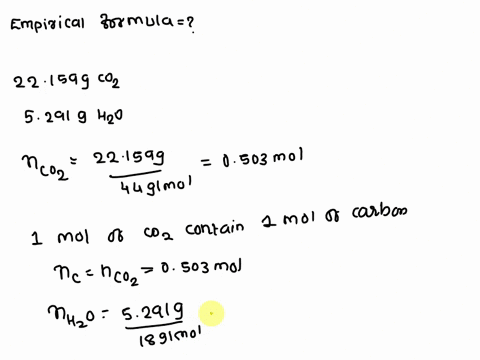 Empirical formula=?
22.159g CO2
5.291g H2O
nCO2 = 22.159g / 44g/mol = 0.503 mol
1 mol of CO2 contain 1 mol of carbon
nC = nCO2 = 0.503 mol
nH2O = 5.291g / 18g/mol